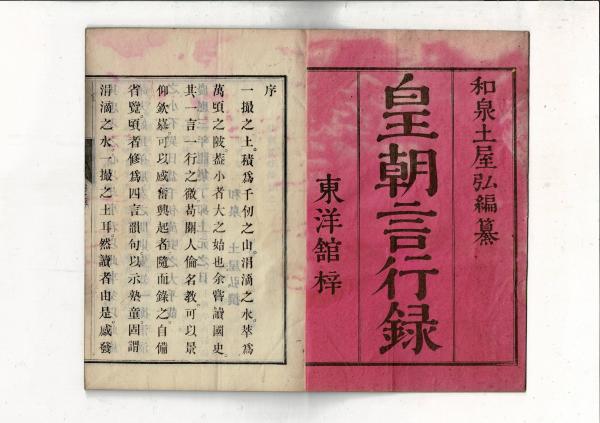 和泉土屋弘編纂
皇朝言行録
東洋舘梓
序
一撮之土。積爲千仞之山。涓滴之水。萃爲
萬頃之陂。葢小者大之始也。余嘗讀國史。
其一言一行之微。苟關人倫名教。可以景
仰欽慕。可以感奮興起者。隨而錄之。自備
省覽。頃者修爲四言韻句。以示塾童。固謂
涓滴之水。一撮之土耳。然讀者由是感發